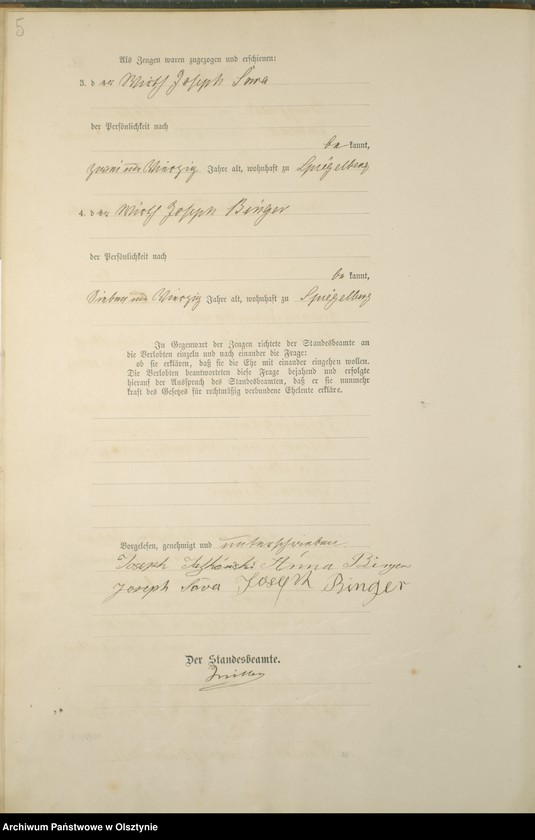 5
Als Zeugen waren zugezogen und erschienen:
3. der Wirth Joseph Sowa
der Persönlichkeit nach
be kannt,
zwei und Vierzig Jahre alt, wohnhaft zu Spiegelberg
4. der Wirth Joseph Binger
der Persönlichkeit nach
be kannt,
Sieben und Vierzig Jahre alt, wohnhaft zu Spiegelberg
In Gegenwart der Zeugen richtete der Standesbeamte an
die Verlobten einzeln und nach einander die Frage:
ob sie erklären, daß sie die Ehe mit einander eingehen wollen.
Die Verlobten beantworteten diese Frage bejahend und erfolgte
hierauf der Ausspruch des Standesbeamten, daß er sie nunmehr
kraft des Gesetzes für rechtmäßig verbundene Eheleute erkläre.
Vorgelesen, genehmigt und unterschrieben.
Joseph Anna Binger
Joseph Sova Joseph Binger
Der Standesbeamte.
Archiwum Państwowe w Olsztynie